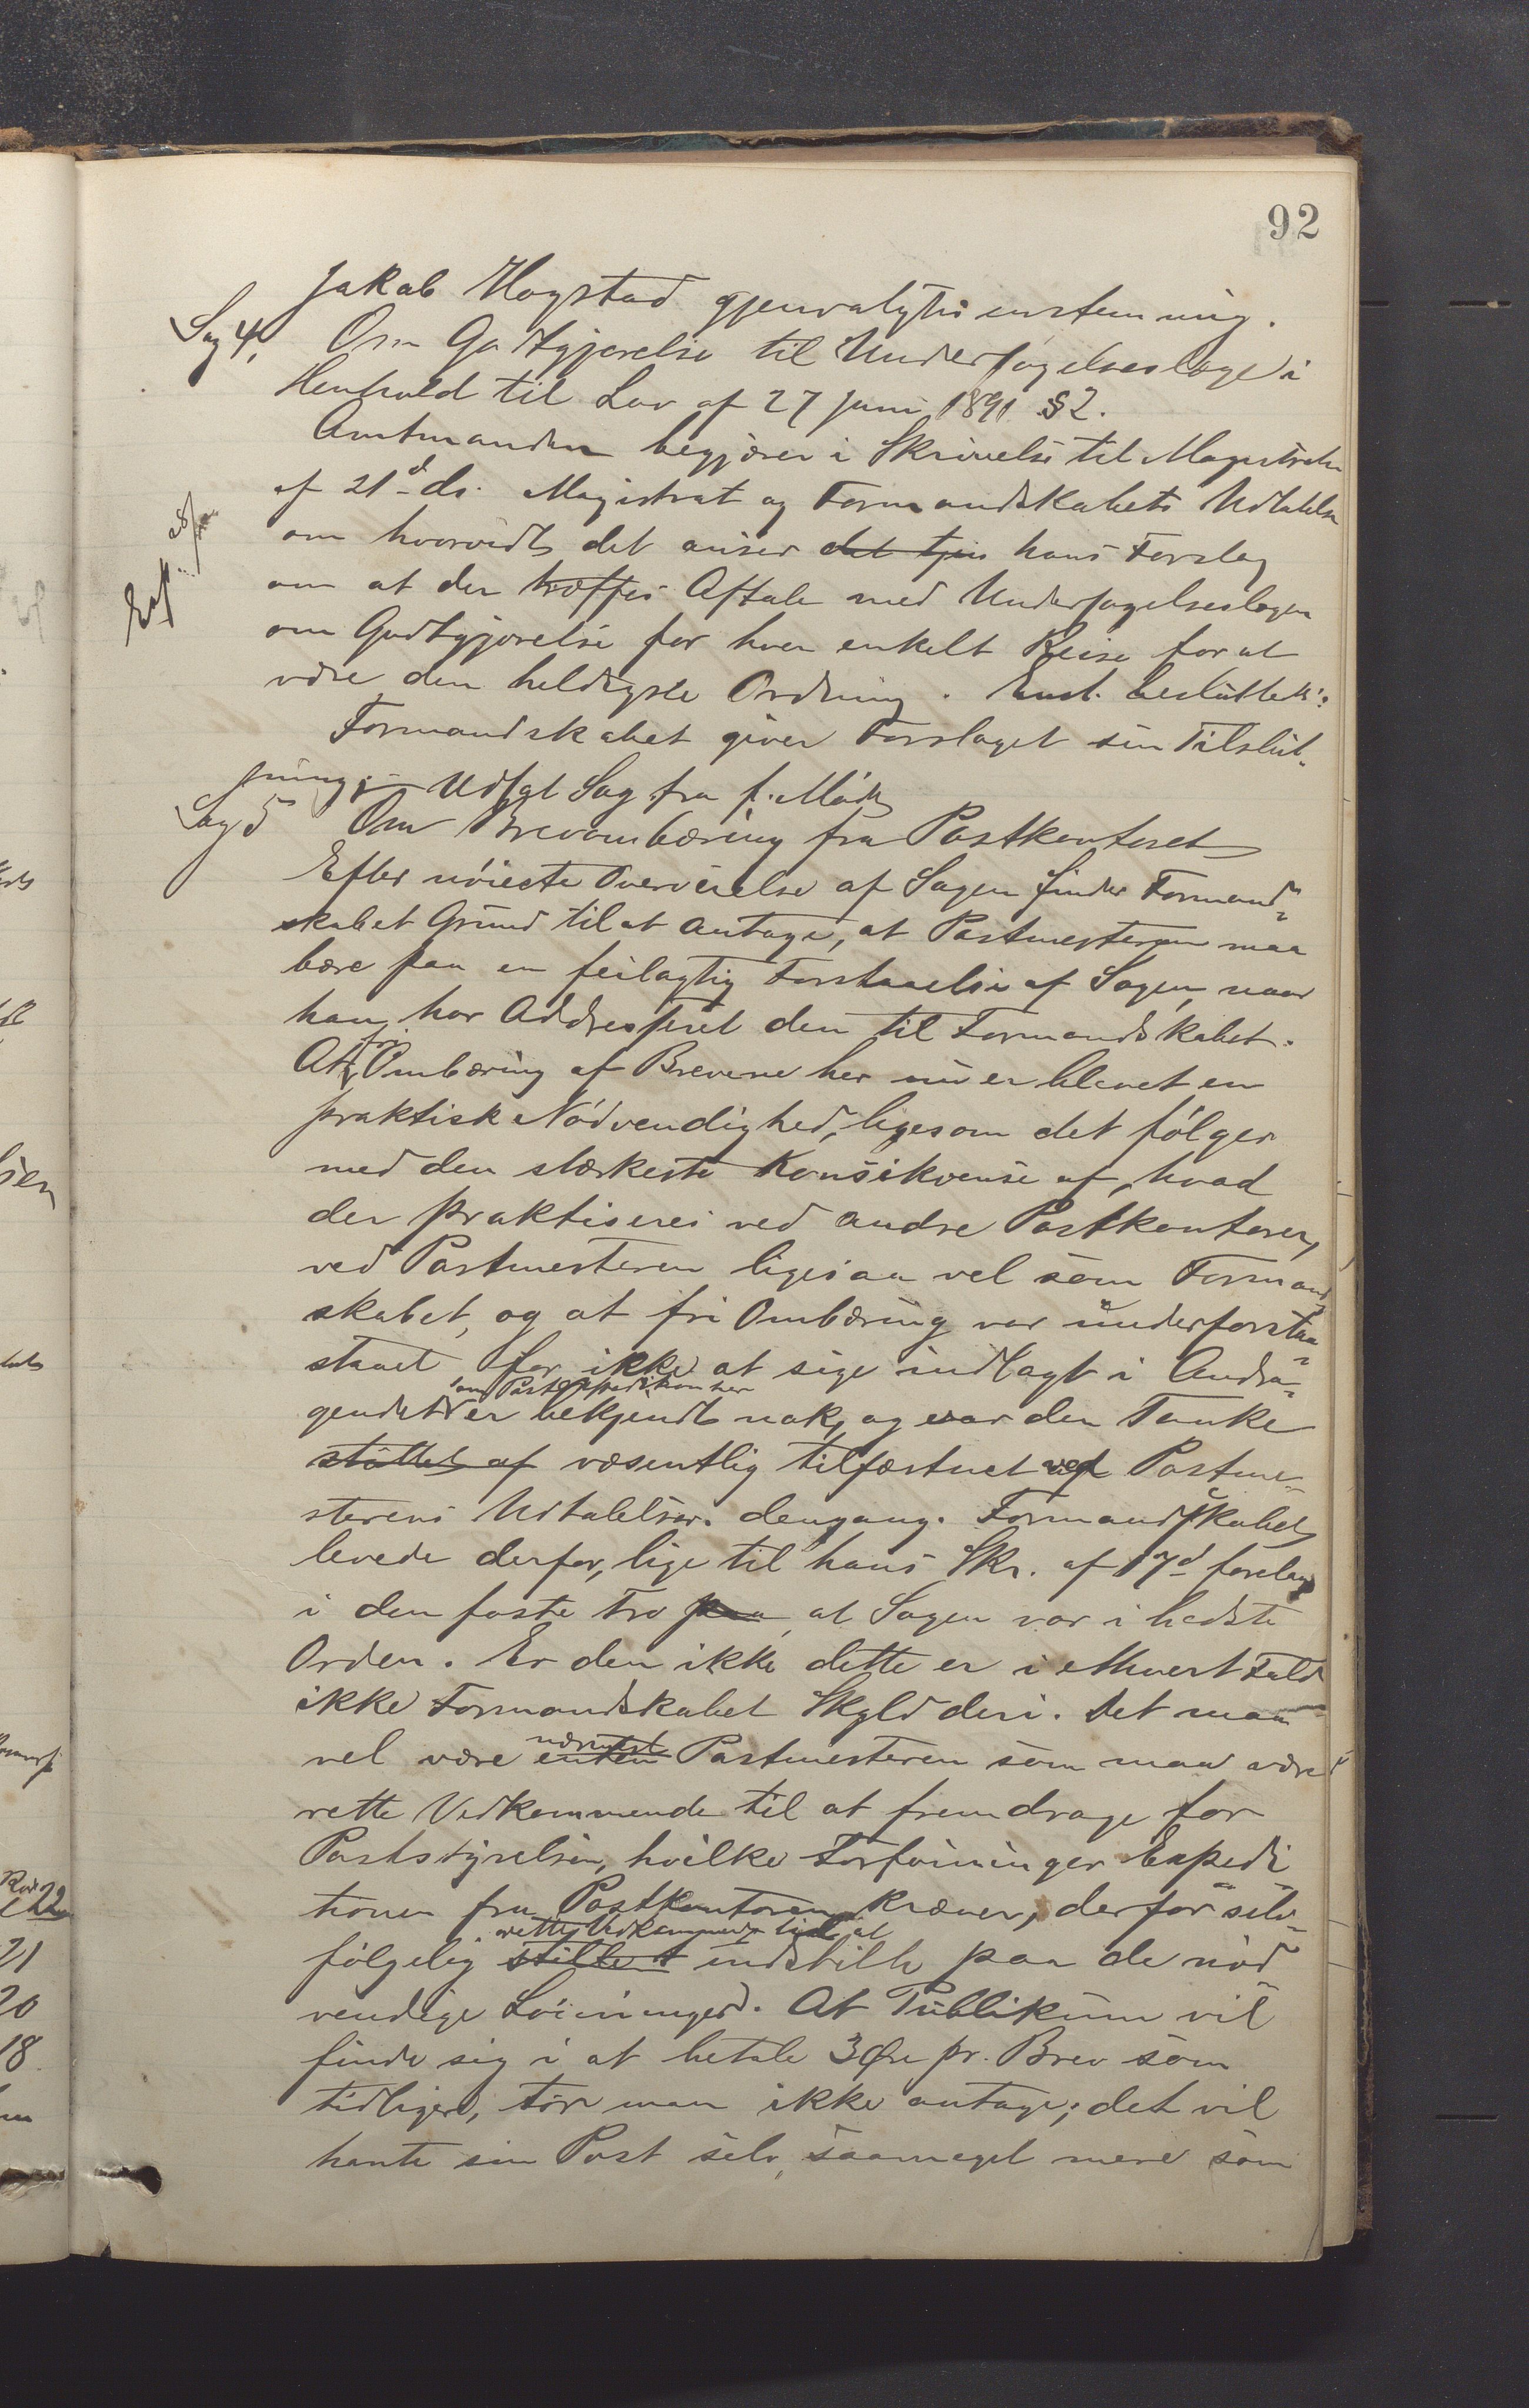 92
Jakob Hogstad gjenvalgtes enstemmig.
Sag 4, Om Godtgjørelse til Undersøgelseslæge i
Henhold til Lov af 27 Juni 1891 §2.
Amtmanden begjærer i Skrivelse til Magistraten
af 21d ds. Magistrat og Formandskabets Udtalelse
om hvorvidt det anser det tjen hans Forslag
om at der træffes Aftale med Undersøgelseslægen
om Godtgjørelse for hver enkelt Reise for at
være den heldigste Ordning. Enst. besluttet:
Exp.
Formandskabet giver Forslaget sin Tilslut-
ning; – Udsat Sag fra f. Møde
Sag 5 Om Brevombæring fra Postkontoret
Efter nøieste Overveielse af Sagen finder Formand-
skabet Grund til at antage, at Postmesteren maa
bære paa en feilagtig Forstaaelse af Sagen, naar
han har Addresseret den til Formandskabet.
At fri Ombæring af Brevene her nu er blevet en
praktisk Nødvendighed, ligesom det følger
med den stærkeste Konsekvense af, hvad
der praktiseres ved andre Postkontorer,
ved Postmesteren ligesaa vel som Formand
skabet, og at fri Ombæring var underforstaa-
staaet for ikke at sige indlagt i Andra-
gendet om Postexpedition her er bekjendt nok, og var den Tanke
støttet af væsentlig tilfæstnet ved Postme-
sterens Udtalelser dengang. Formandskabet
levede derfor, lige til hans Skr. af 17d forelaa
i den faste Tro paa, at Sagen var i bedste
Orden. Er den ikke dette er i ethvert Fald
ikke Formandskabet Skyld deri. Det maa
vel være enten nærmest Postmesteren som maa være
rette Vedkommende til at fremdrage for
Poststyrelsen, hvilke Forføininger Expedi
tionen fra Postkontoren kræver, derfor selv-
følgelig stillet rette Vedkommende til at indstille paa de nød
vendige Lønninger. At Publikum vil
finde sig i at betale 3 Øre pr. Brev som
tidligere, tør man ikke antage; det vil
hente sin Post selv, saameget mere som